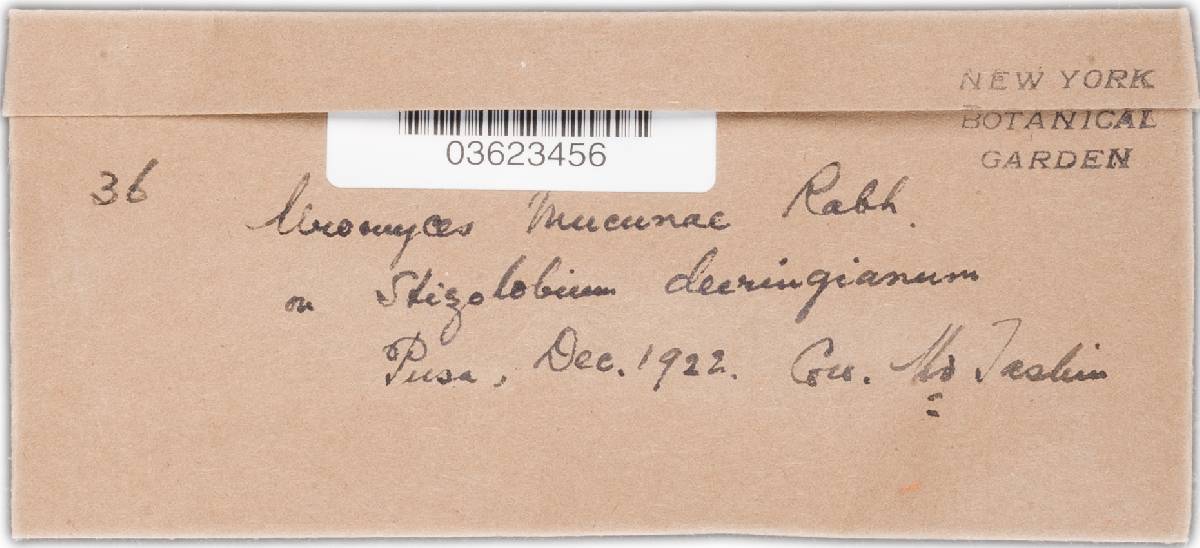 NEW YORK
BOTANICAL
GARDEN
03623456
36
Uromyces Mucunae Rabh.
on Stizolobium deeringianum
Pusa, Dec. 1922. Md Taslim